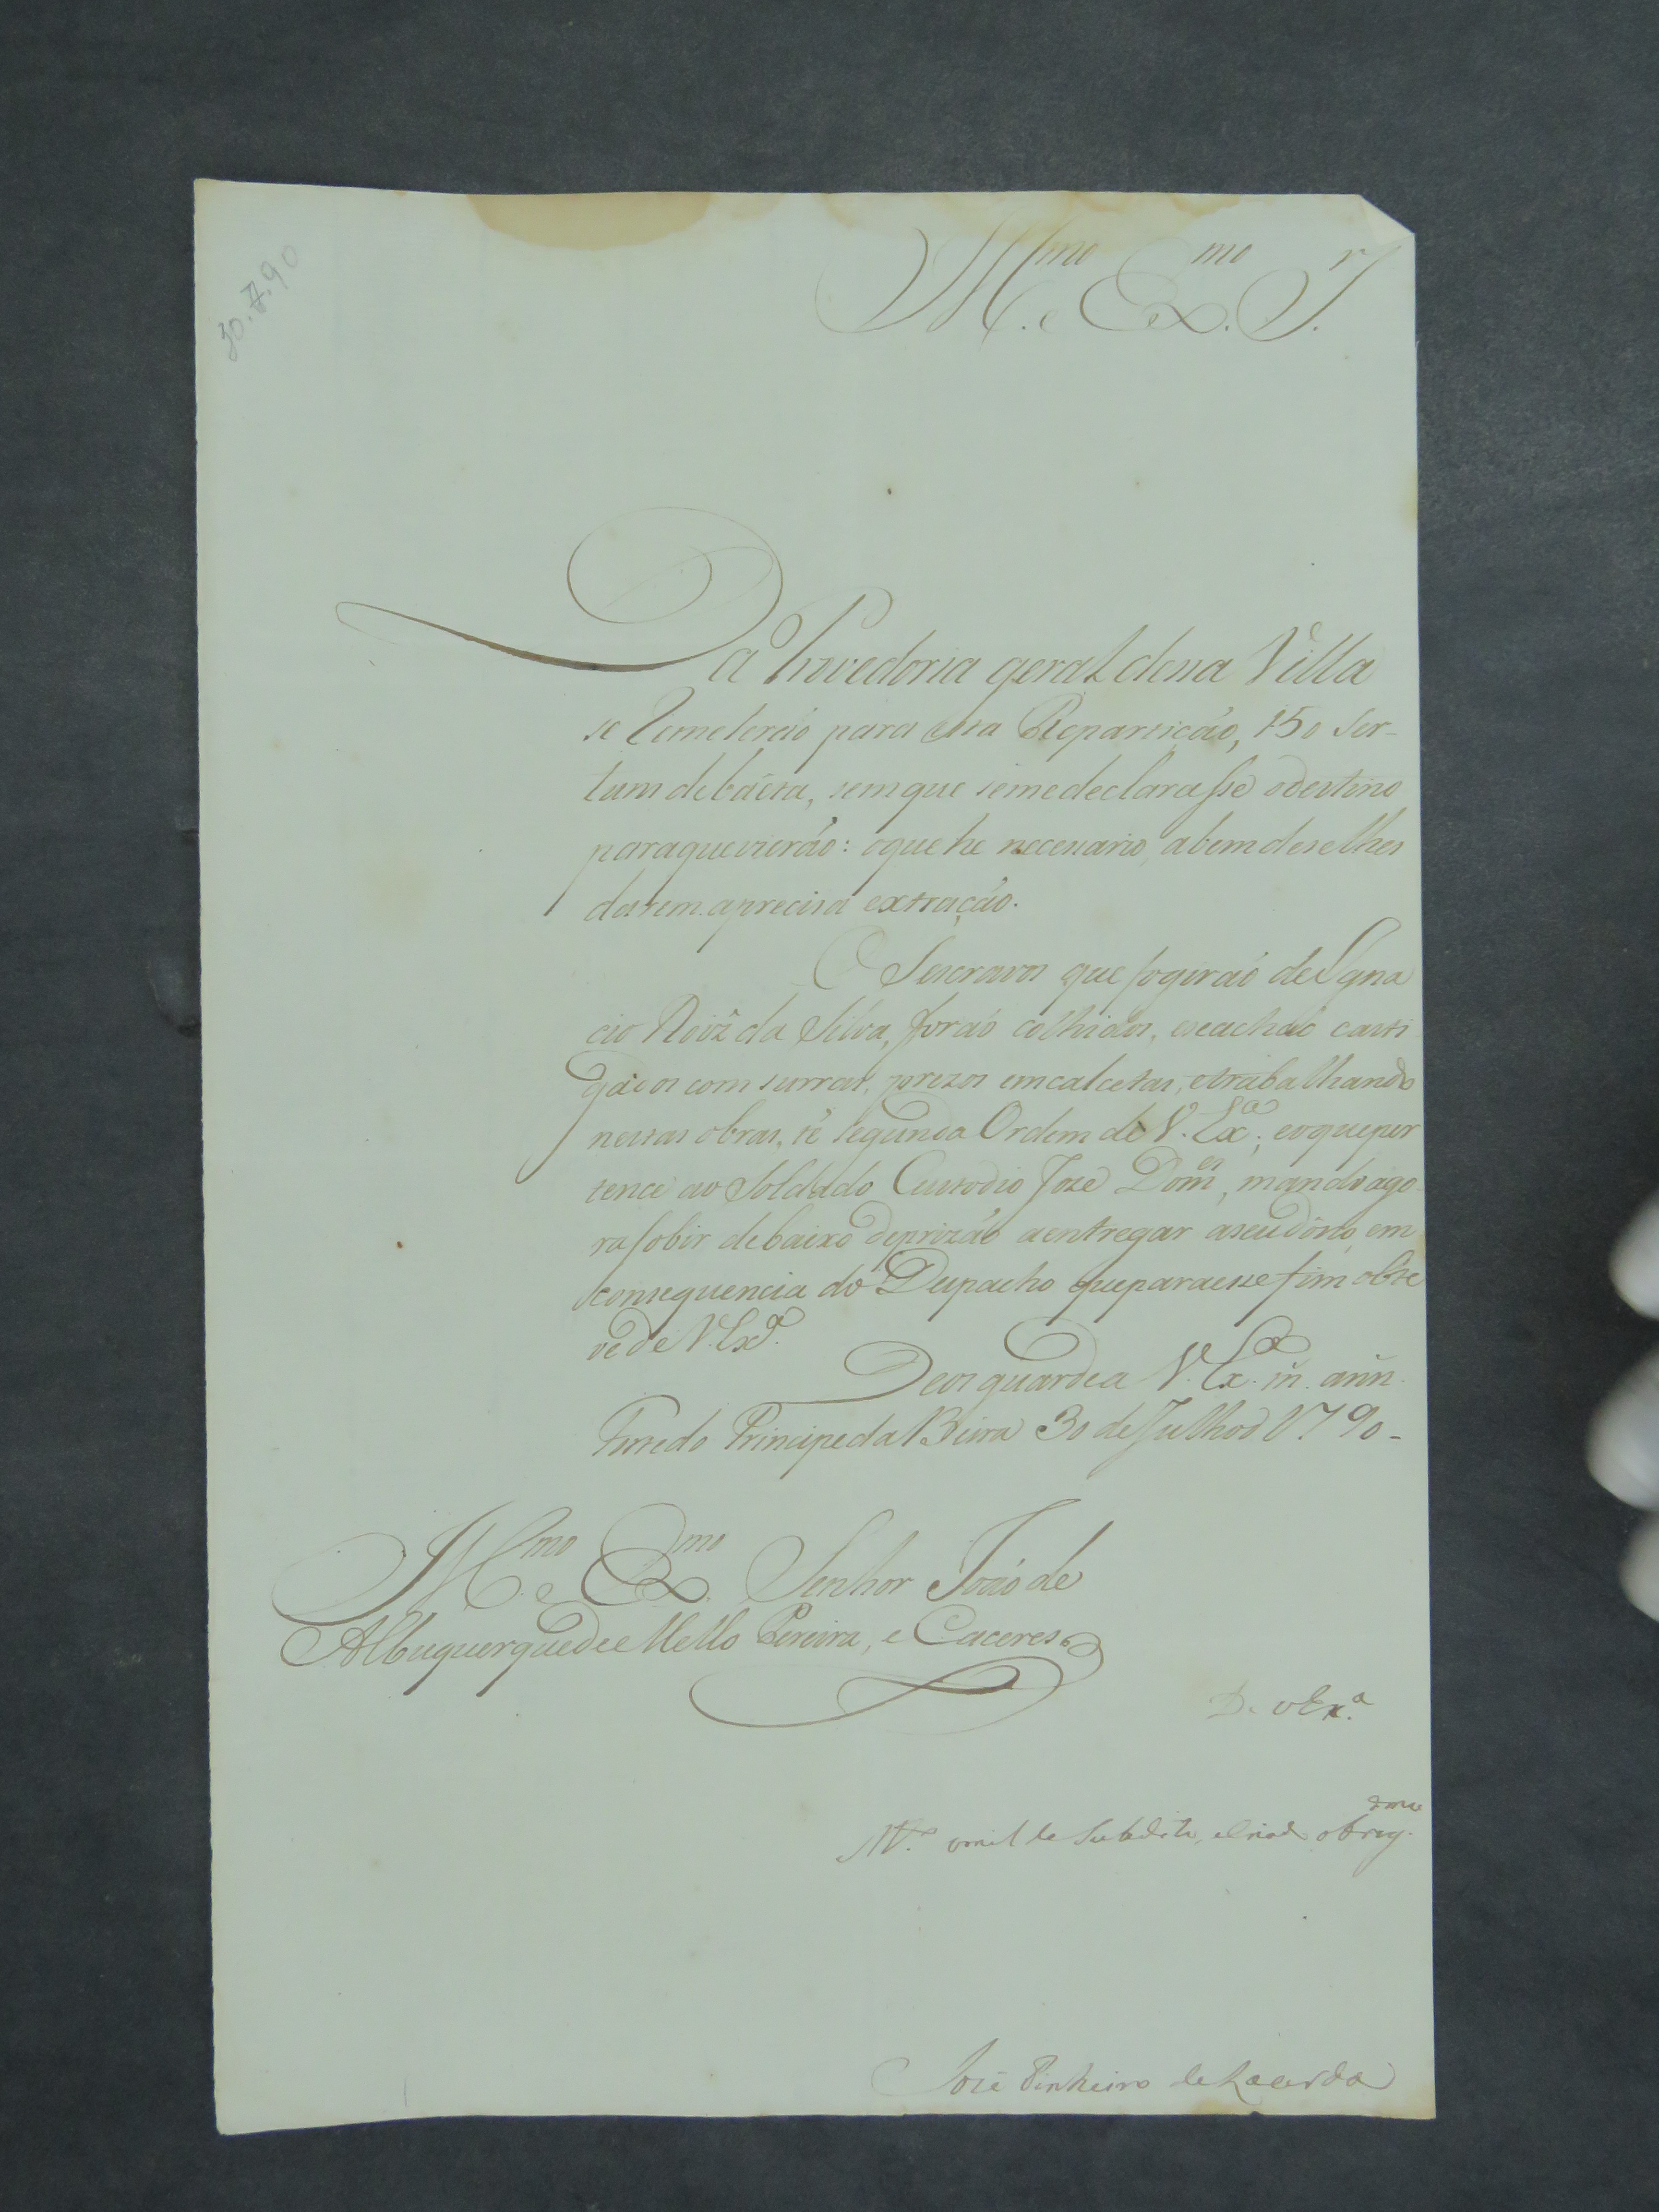 30.7.90
Ill.mo e Ex.mo S.r
Da Provedoria geral dessa Villa
se remeterão para esta Repartição, 150 Ser-
tuns de baeta, sem que se me declarasse o destino
para que vierão: o que he necessario, a bem de se lhes
darem a preciza extração.
Os escravos que fogirão de Igna
cio Roiz da Silva, forão colhidos, e se achão casti
gados com surras, prezos em calcetas, e trabalhando
nestas obras, té segunda Ordem de V. Ex.a; e o que per
tence ao Soldado Custodio Joze Dom.es, mando ago
ra sobir debaixo de prizão a entregar a seu dono, em
consequencia do Despacho que para esse fim obte
ve de V. Ex.a
Deos guarde a V. Ex.a m. ann.
Forte do Principe da Beira 30 de Julho d 1790-
Ill.mo e Ex.mo Senhor João de
Albuquerque de Mello Pereira, e Caceres
De V Ex.a
Subdito, e Criado obrig.dmo
José Pinheiro de Lacerda